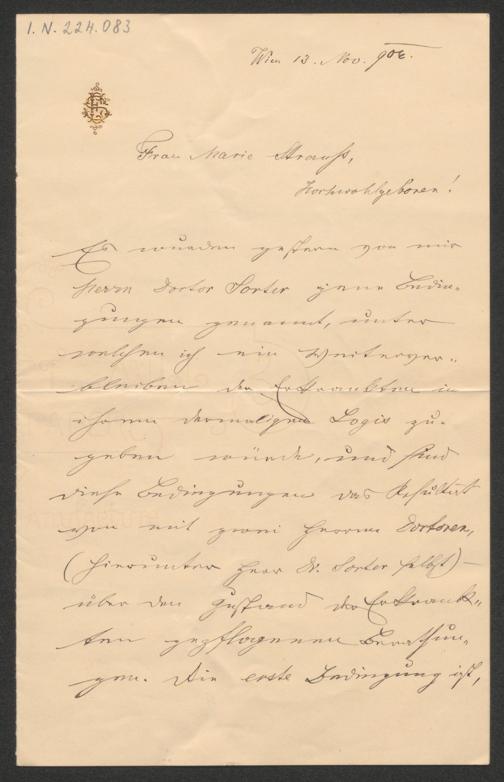 I. N. 224.083
Wien 13. Nov. 902.
Frau Marie Strauß,
Hochwohlgeboren!
Es wurden gestern von mir
Herrn Doctor Sorter jene Bedin-
gungen genannt, unter
welchen ich ein Weiterver-
bleiben der Erkrankten in
ihrem dermaligen Logis zu-
geben würde, und sind
diese Bedingungen das Resultat
von mit zwei Herren Doctoren,
(hierunter Herr Dr. Sorter selbst) —
über den Zustand der Erkrank-
ten gepflogenen Berathun-
gen. Die erste Bedingung ist,